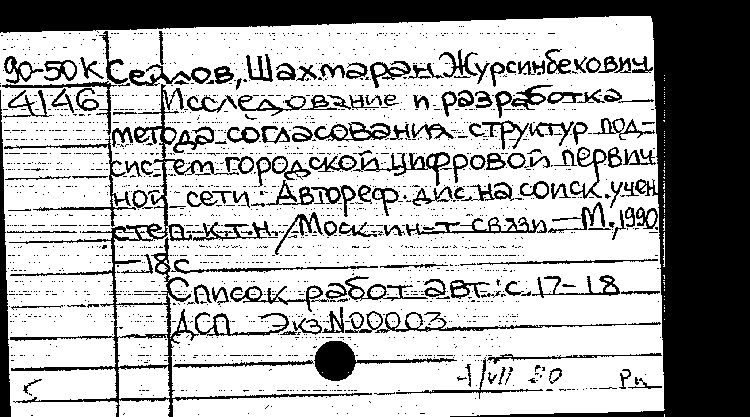 90-50К Сейлов, Шахмаран Журсинбекович
4146 Исследование и разработка
метода согласования структур под-
систем городской цифровой первич
ной сети: Автореф. дис. на соиск. учен
степ. к.т.н. / Моск. ин-т связи. — М., 1990
— 18с
Список работ авт.: с. 17-18
ДСП Экз. N00003
1/VII 90
5